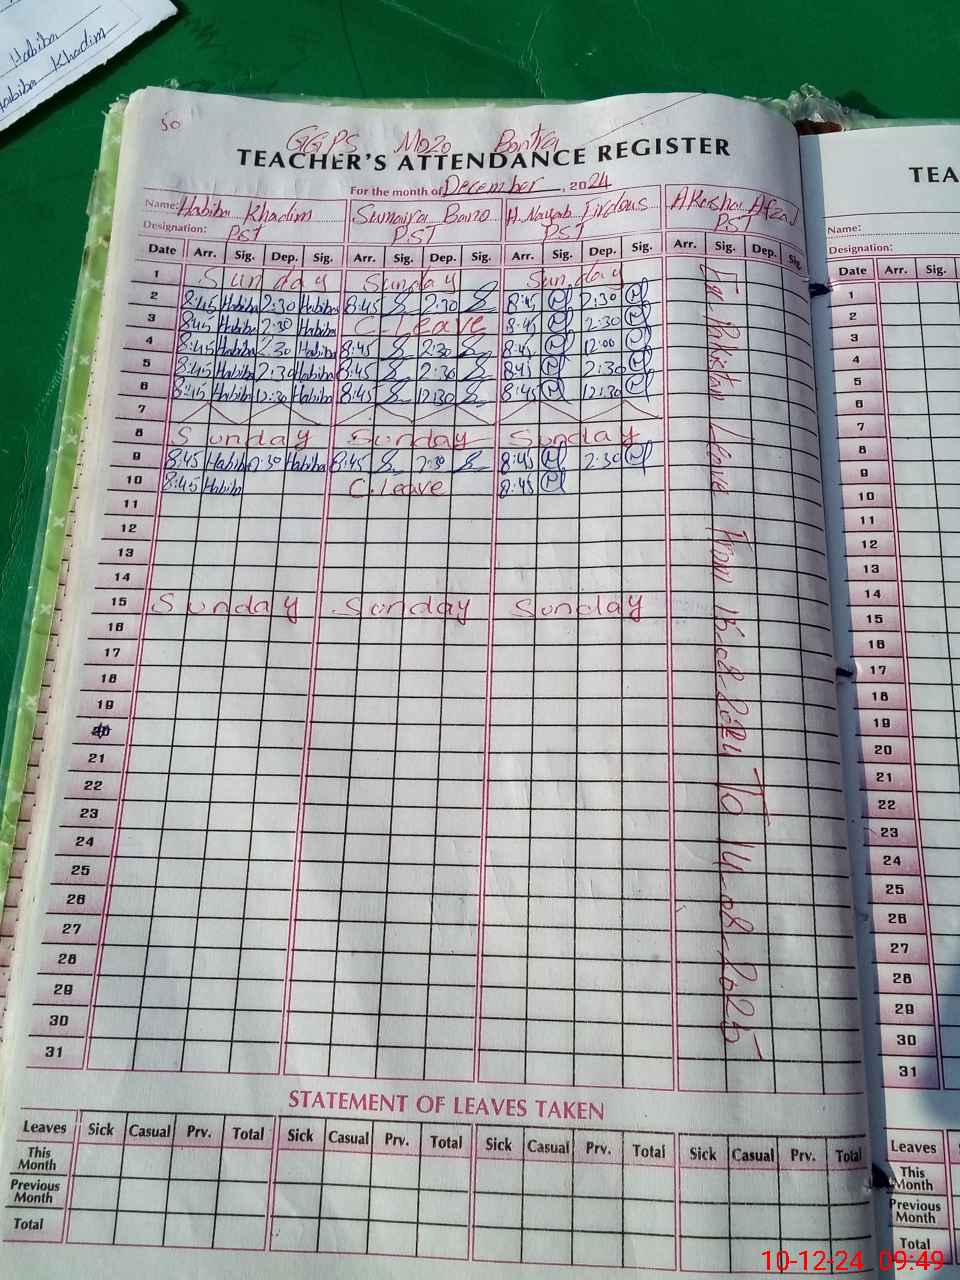 Habiba
Habiba Khadim
50
GGPS Mozo
TEACHER'S ATTENDANCE REGISTER
For the month of December, 2024
Name: Habiba Khadim Sumaira Bano H. Nayab Firdous Akasha Afzal
Designation: PST PST PST PST
Date Arr. Sig. Dep. Sig. Arr. Sig. Dep. Sig. Arr. Sig. Dep. Sig. Arr. Sig. Dep. Sig.
1 Sunday Sunday Sunday
2 8:45 Habiba 2:30 Habiba 8:45 2:30 8:45 2:30
3 8:45 Habiba 2:30 Habiba C.Leave 8:45 2:30
4 8:45 Habiba 2:30 Habiba 8:45 2:30 8:45 12:00
5 8:45 Habiba 2:30 Habiba 8:45 2:30 8:45 2:30
6 8:45 Habiba 12:30 Habiba 8:45 12:30 8:45 12:30
7
8 Sunday Sunday Sunday
9 8:45 Habiba 2:30 Habiba 8:45 2:30 8:45 2:30
10 8:45 Habib C.leave 8:45
11
12
13
14
15 Sunday Sunday Sunday
16
17
18
19
20
21
22
23
24
25
26
27
28
29
30
31
Ex. Pakistan Leave From 15-08-2024 To 14-08-2025
STATEMENT OF LEAVES TAKEN
Leaves Sick Casual Prv. Total Sick Casual Prv. Total Sick Casual Prv. Total Sick Casual Prv. Total
This Month
Previous Month
Total
TEA
Name:
Designation:
Date Arr. Sig.
1
2
3
4
5
6
7
8
9
10
11
12
13
14
15
16
17
18
19
20
21
22
23
24
25
26
27
28
29
30
31
Leaves
This Month
Previous Month
Total
10-12-24 09:49